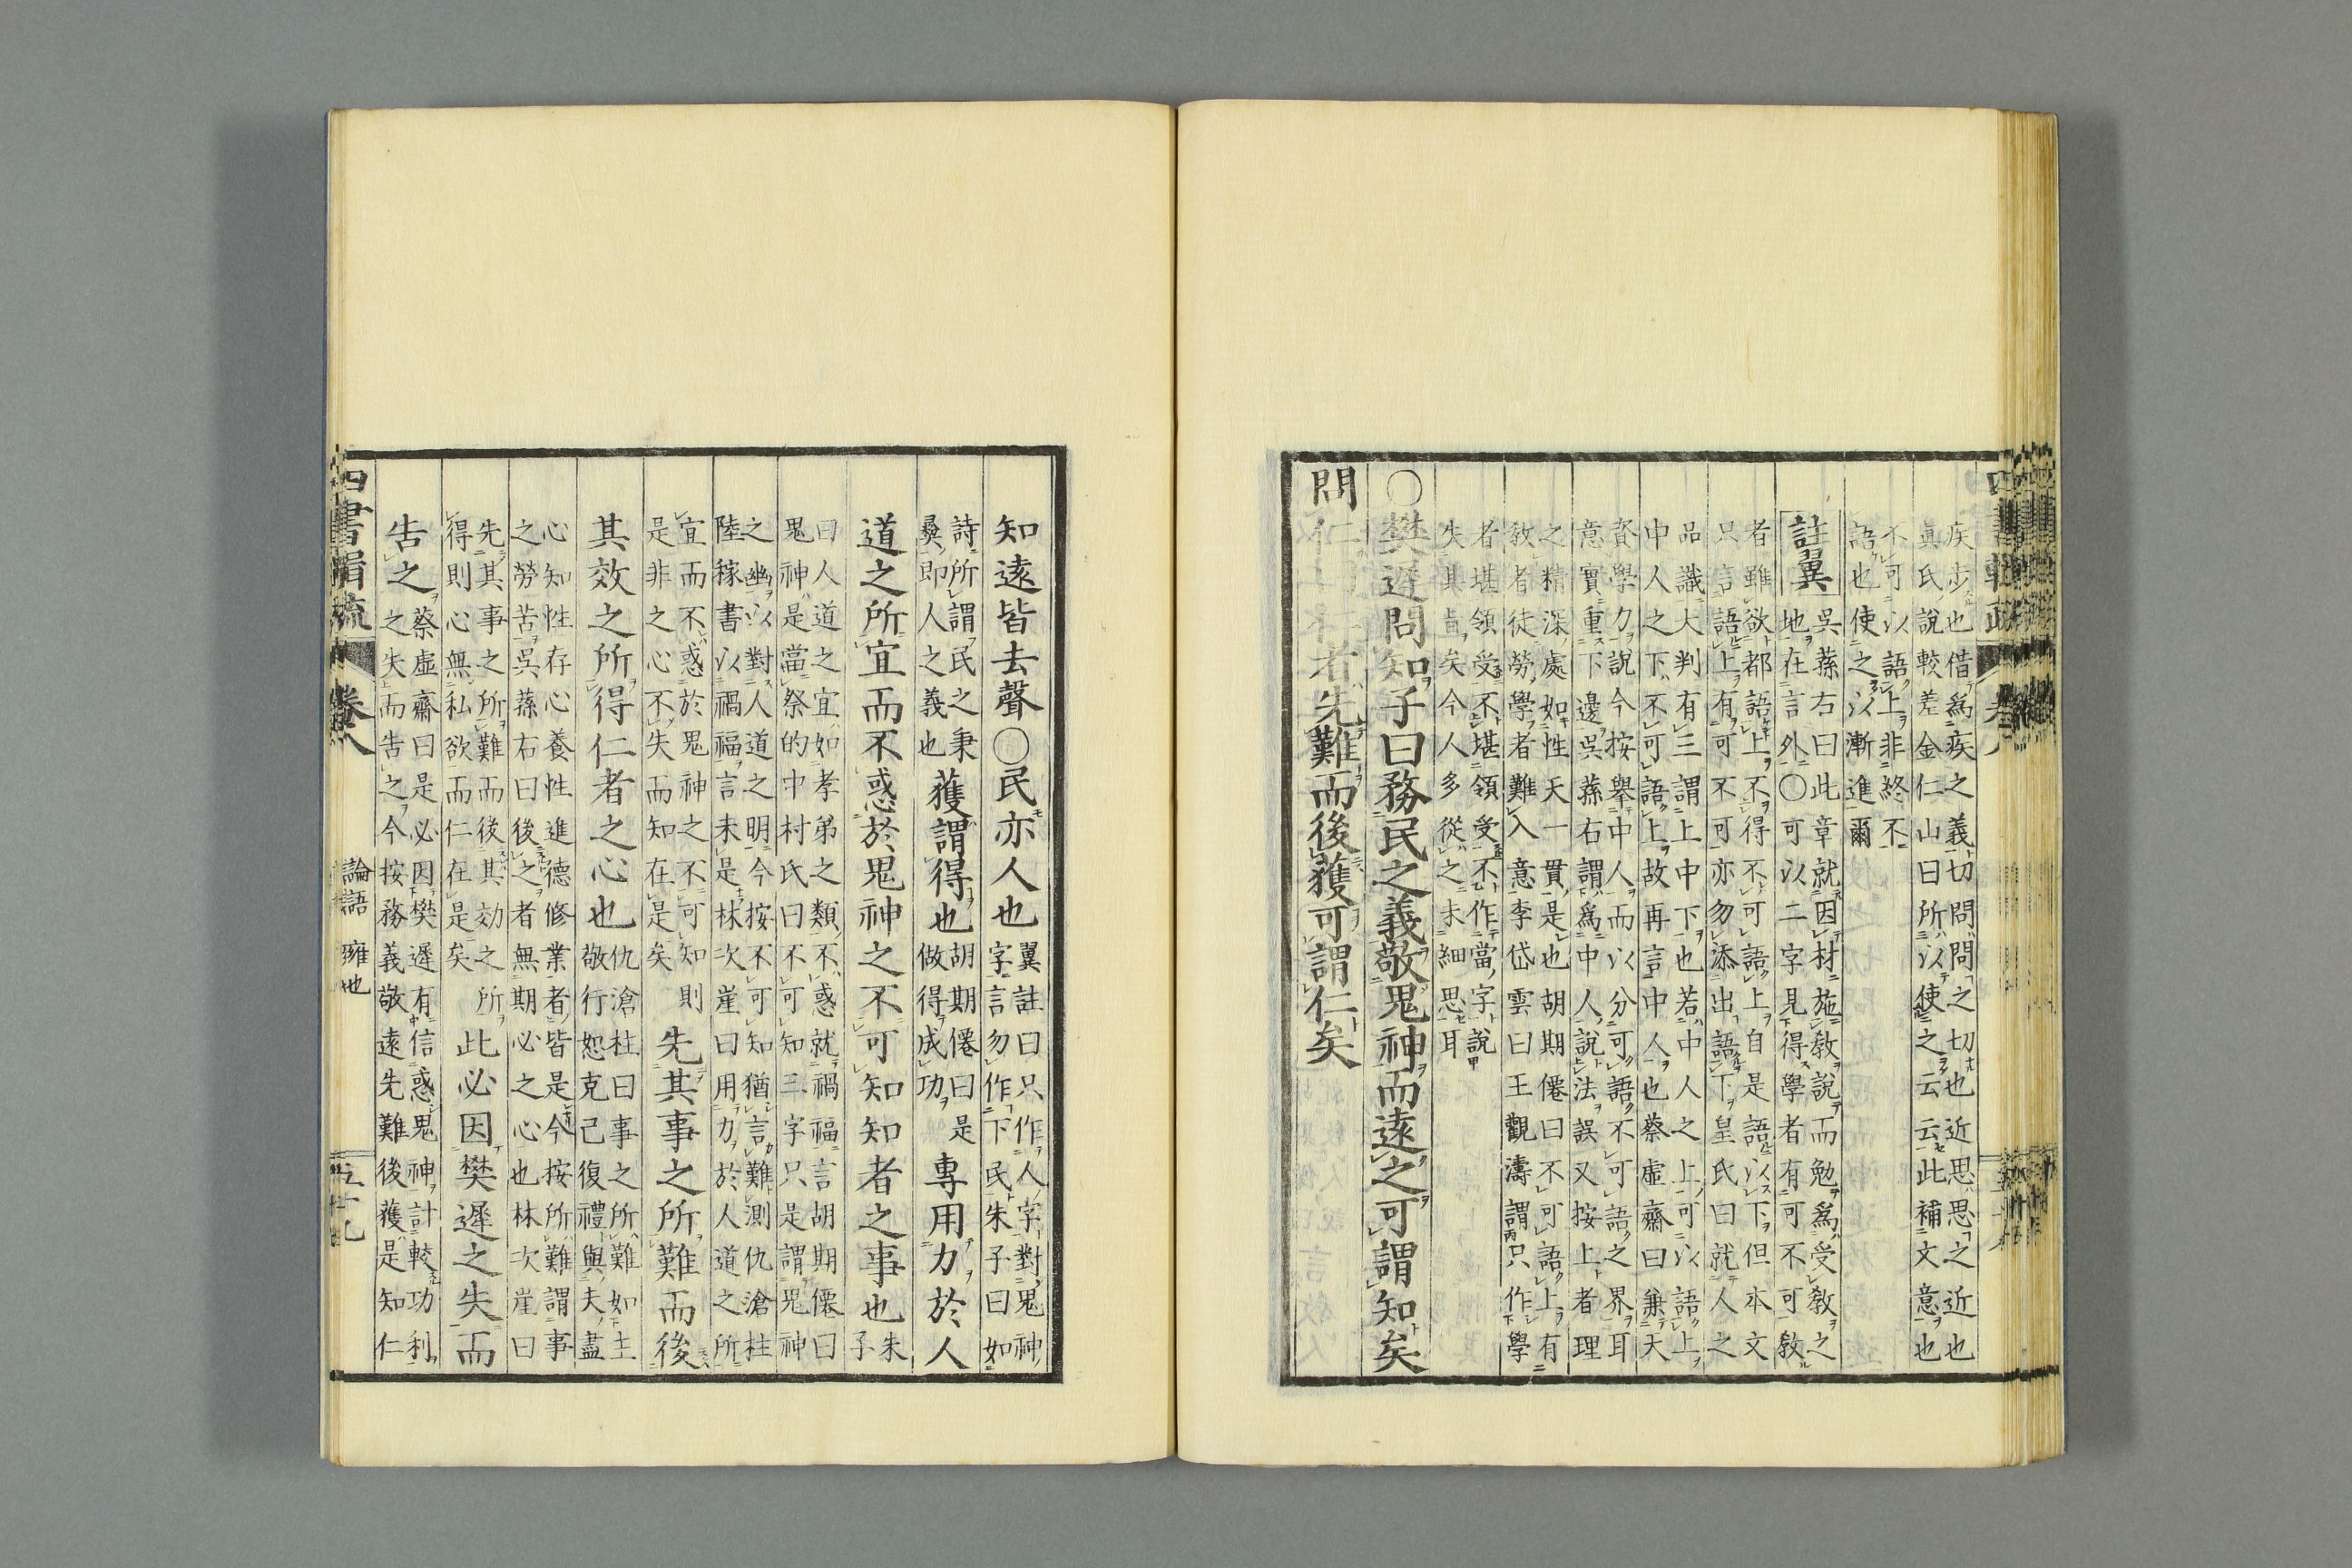 疾歩也借爲疾之義切問問之切也近思思之近也
眞氏說較差金仁山曰所以使之云云此補文意也
不可以語上非終不
語也使之以漸進爾
註翼
吳蓀右曰此章就因材施敎說而勉爲受敎之
地在言外〇可以二字見得學者有可不可敎
者雖欲都語上不得不可語上自是語以下但本文
只言語上有可不可亦勿添出語下皇氏曰就人之
品識大判有三謂上中下也若中人之上可以語上
中人之下不可語上故再言中人也蔡虛齋曰兼天
資學力說今按擧中人而以分可語不可語之界耳
意實重下邊吳蓀右謂爲中人說法誤又按上者理
之精深處如性天一貫是也胡期僊曰不可語上有
敎者徒勞學者難入意李岱雲曰王觀濤謂只作學
者堪領受不堪領受不作當字說
失其旨矣今人多從之未細思耳
〇樊遲問知子曰務民之義敬鬼神而遠之可謂知矣
問仁曰仁者先難而後獲可謂仁矣
知遠皆去聲〇民亦人也
翼註曰只作人字對鬼神
字言勿作下民朱子曰如
詩所謂民之秉
彝卽人之義也
獲謂得也
胡期僊曰是
做得成功
專用力於人
道之所宜而不惑於鬼神之不可知知者之事也
朱
子
曰人道之宜如孝弟之類不惑就禍福言胡期僊曰
鬼神是當祭的中村氏曰不可知三字只是謂鬼神
之幽以對人道之明今按不可知猶言難測仇滄柱
陸稼書以禍福言未是林次崖曰用力於人道之所
宜而不惑於鬼神之不可知則
是非之心不失而知在是矣
先其事之所難而後
其效之所得仁者之心也
仇滄柱曰事之所難如主
敬行恕克己復禮與夫盡
心知性存心養性進德修業者皆是今按所難謂事
之勞苦吳蓀右曰後之者無期必之心也林次崖曰
先其事之所難而後其効之所
得則心無私欲而仁在是矣
此必因樊遲之失而
告之
蔡虛齋曰是必因樊遲有信惑鬼神計較功利
之失而告之今按務義敬遠先難後獲是知仁
卷八
論語
雍也
五十九